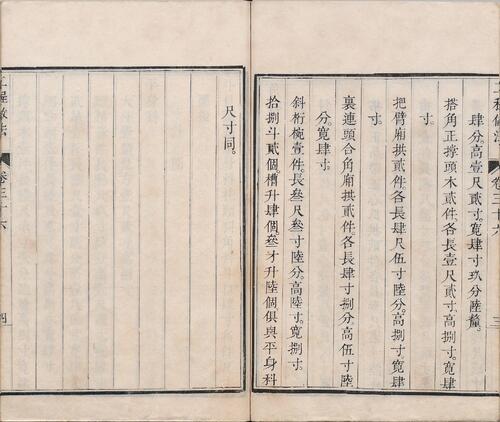 肆分。高壹尺貳寸。寬肆寸玖分陸釐。
搭角正撐頭木貳件。各長壹尺貳寸。高捌寸。寬肆
寸。
把臂廂拱貳件。各長肆尺伍寸陸分。高捌寸。寬肆
寸。
裏連頭合角廂拱貳件。各長肆寸捌分。高伍寸陸
分。寬肆寸。
斜桁椀壹件。長叄尺叄寸陸分。高陸寸。寬捌寸。
拾捌斗貳個。槽升肆個。叄才升陸個。俱與平身科
尺寸同。
工程做法
卷三十六
三
工程做法
卷三十六
四